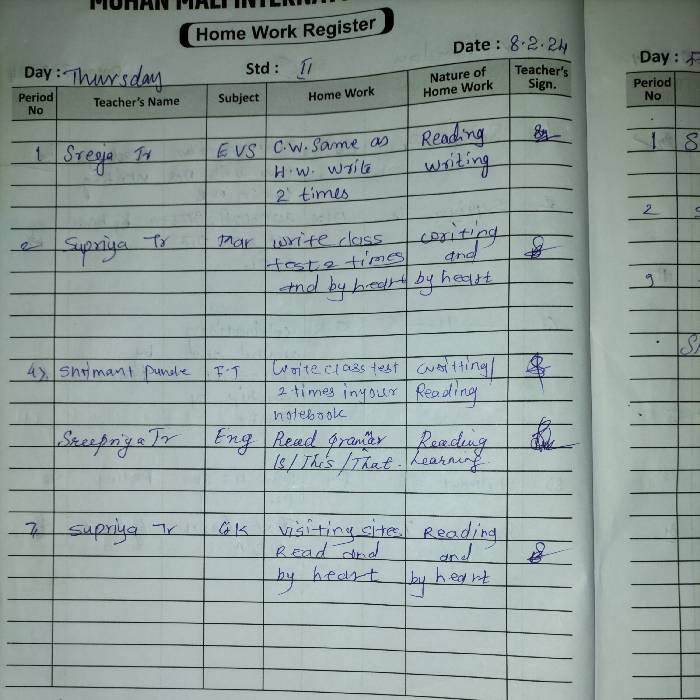 MOHAN MALI INTERNAT
Home Work Register
Date : 8.2.24
Day : Thursday Std : II
Period No Teacher's Name Subject Home Work Nature of Home Work Teacher's Sign.
1 Sreeja Tr EVS C.W. Same as Reading
H.W. write writing
2 times
2 Supriya Tr Mar write class writing
test 2 times and
And by heart by heart
4) Shrimant Punde I.T Write class test writting/
2 times in your Reading
notebook
Sreepriya Tr Eng Read gramar Reading
Is/This/That. Learning.
7, Supriya Tr GK visiting sites. Reading
Read and and
by heart by heart
Day :
Period No
1 S
2
3